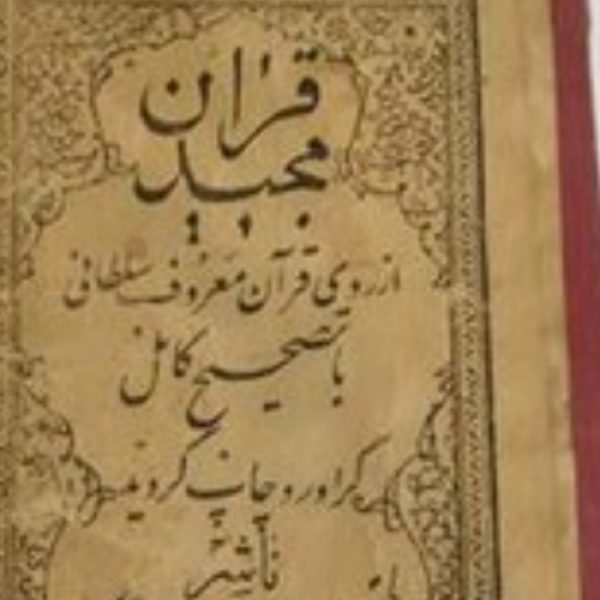 قرآن
مجید
از روی قرآن معروف سلطانی
با تصحیح کامل
گراور و چاپ گردید
ناشر